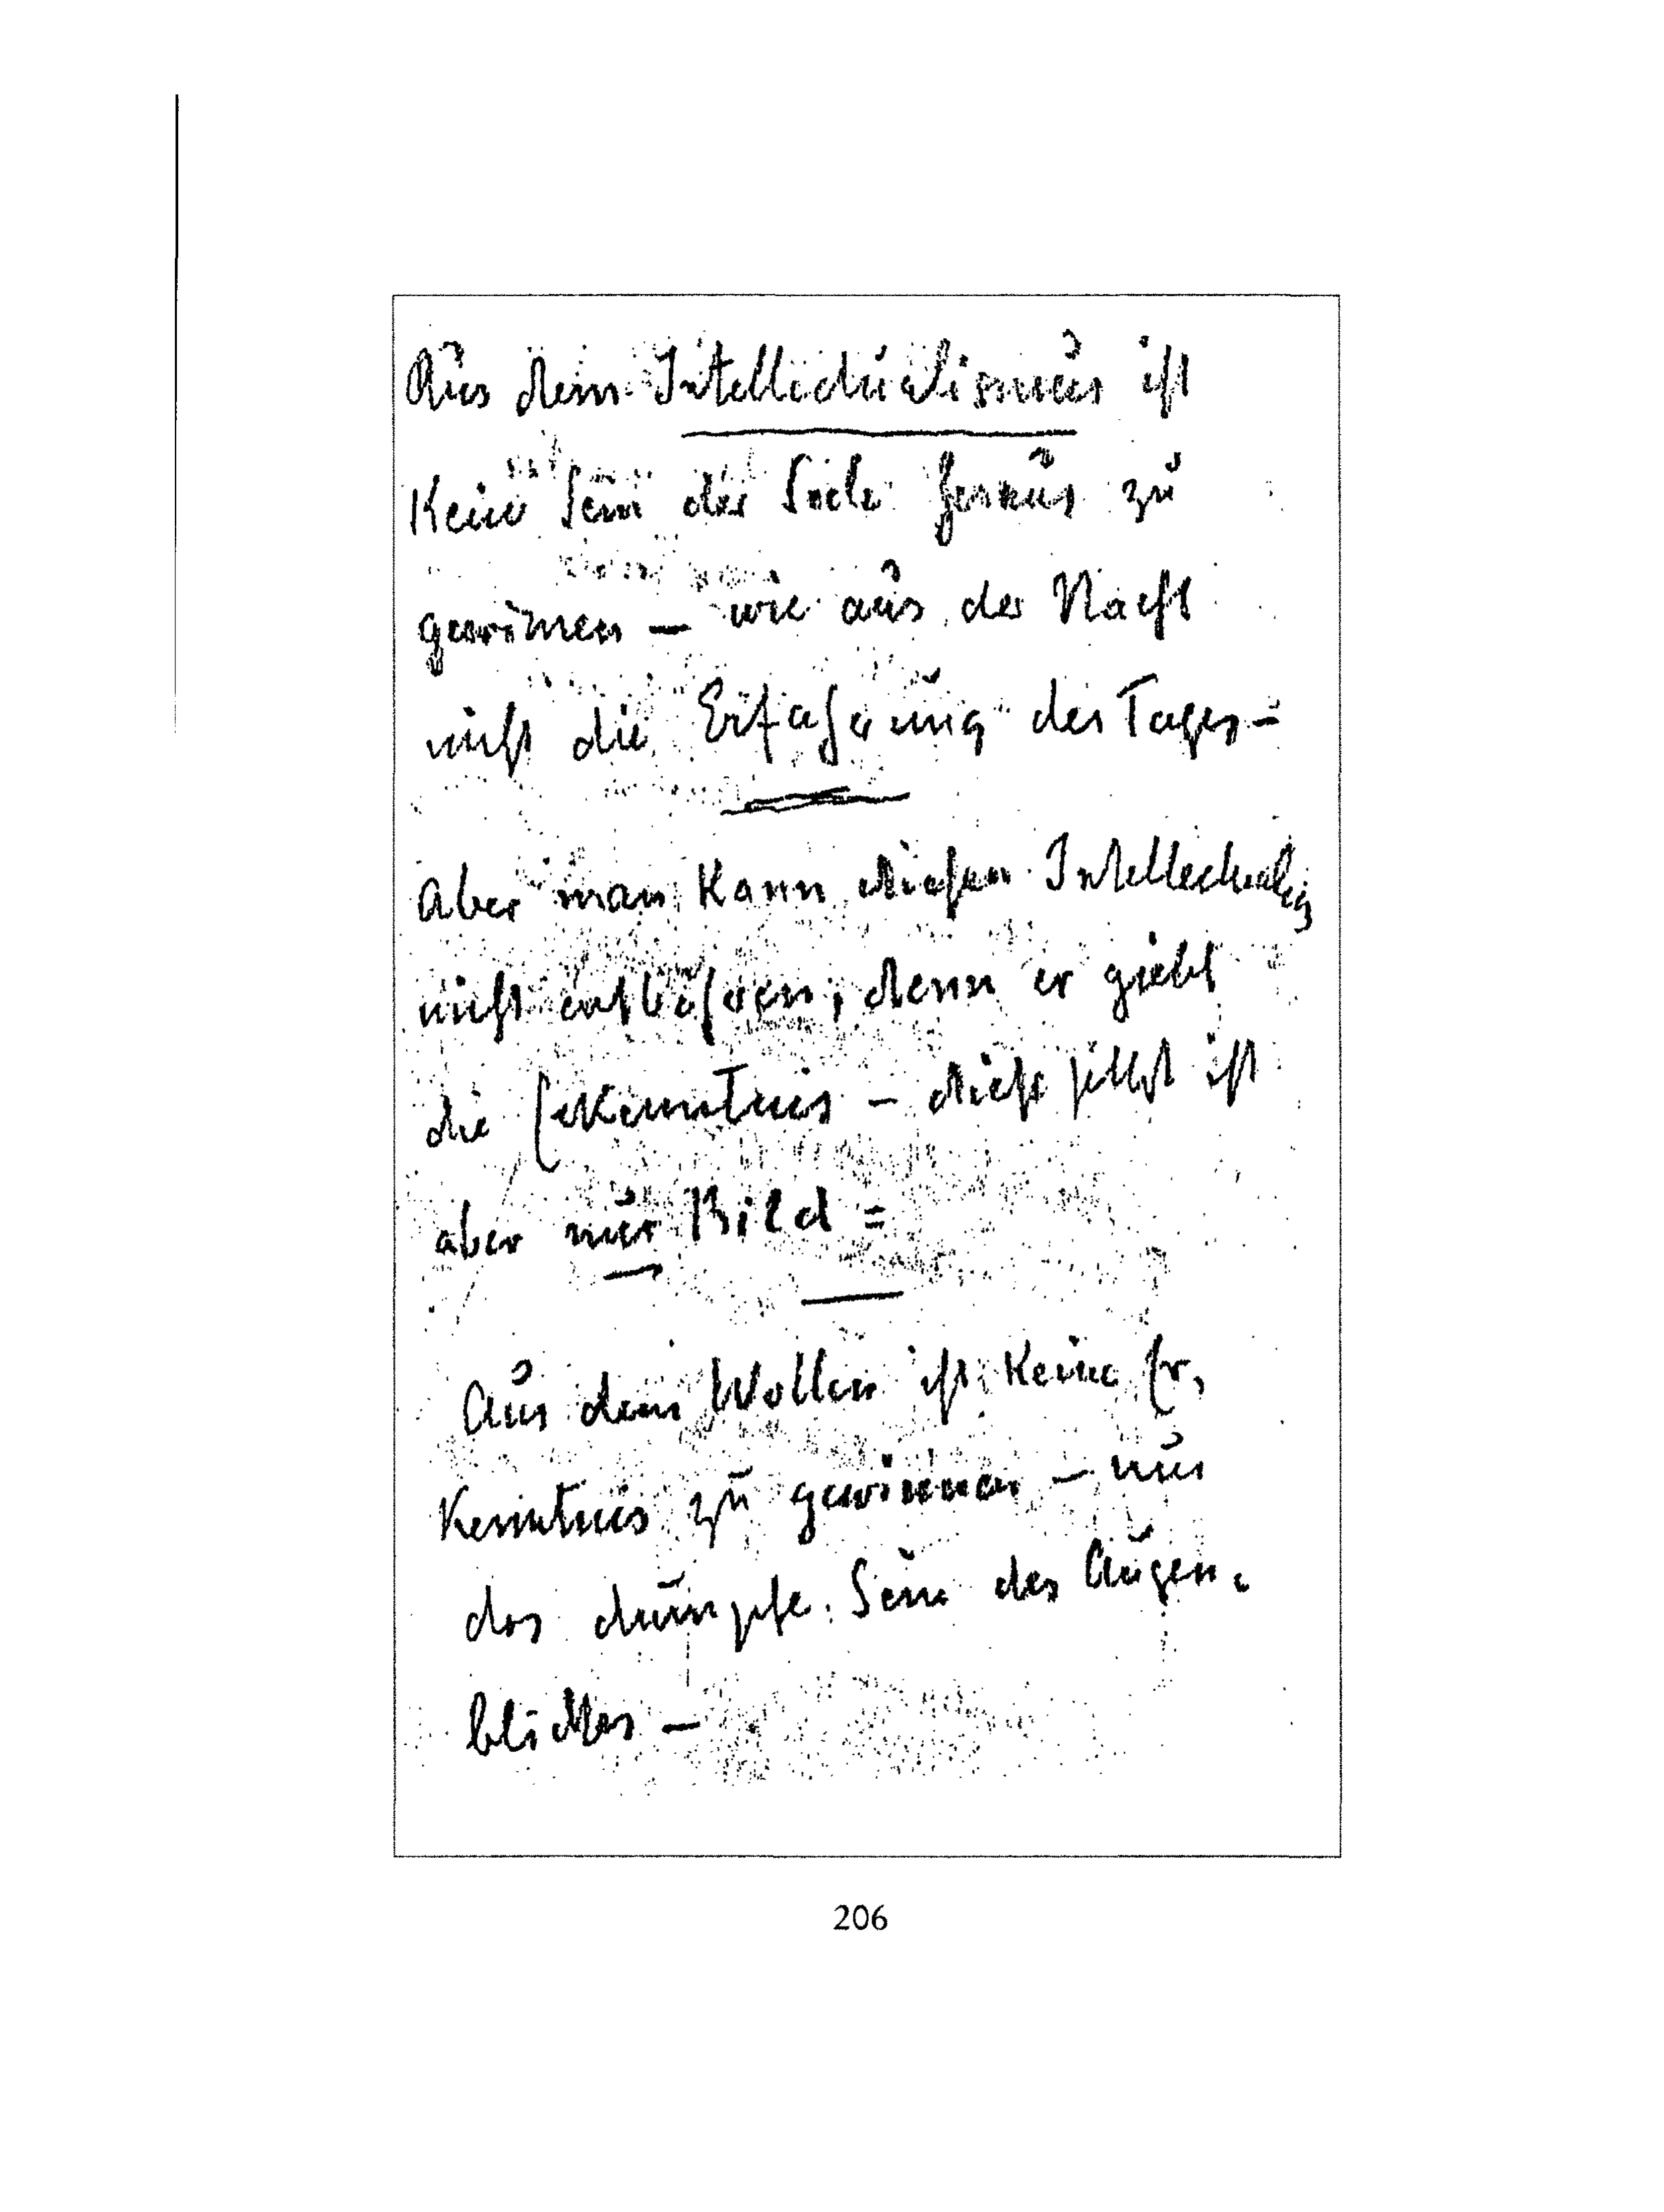 Aus dem Intellectualismus ist
kein Sein der Seele heraus zu
gewinnen – wie aus der Nacht
nicht die Erfahrung des Tages –
Aber man kann diesen Intellectualis
nicht entbehren, denn er giebt
die Erkenntnis – diese selbst ist
aber nur Bild =
Aus dem Wollen ist keine Er,
kenntnis zu gewinnen – nur
das dumpfe Sein des Augen-
blickes –
206